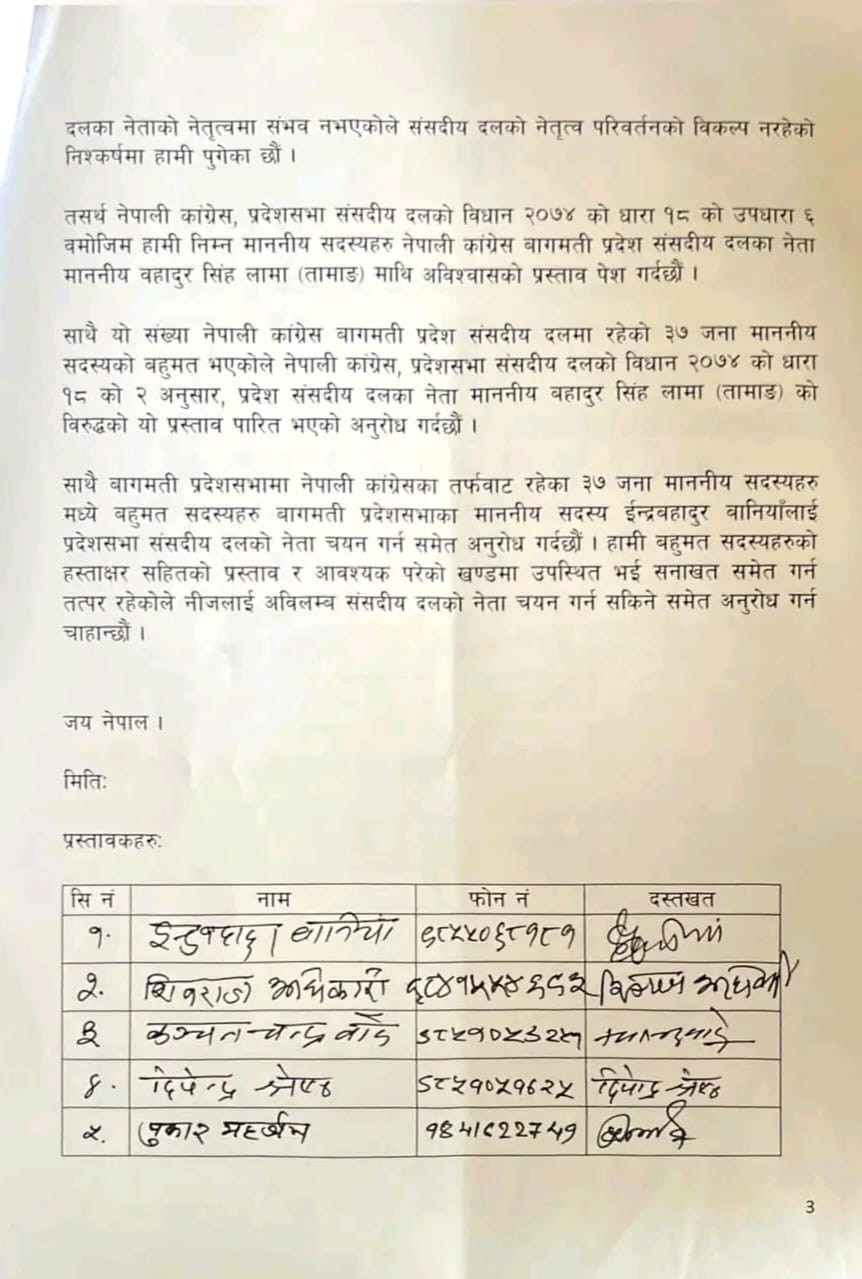 दलका नेताको नेतृत्वमा संभव नभएकोले संसदीय दलको नेतृत्व परिवर्तनको विकल्प नरहेको
निश्कर्षमा हामी पुगेका छौं ।
तसर्थ नेपाली कांग्रेस, प्रदेशसभा संसदीय दलको विधान २०७४ को धारा १८ को उपधारा ६
वमोजिम हामी निम्न माननीय सदस्यहरु नेपाली कांग्रेस बागमती प्रदेश संसदीय दलका नेता
माननीय वहादुर सिंह लामा (तामाङ) माथि अविश्वासको प्रस्ताव पेश गर्दछौं ।
साथै यो संख्या नेपाली कांग्रेस बागमती प्रदेश संसदीय दलमा रहेको ३७ जना माननीय
सदस्यको बहुमत भएकोले नेपाली कांग्रेस, प्रदेशसभा संसदीय दलको विधान २०७४ को धारा
१८ को २ अनुसार, प्रदेश संसदीय दलका नेता माननीय बहादुर सिंह लामा (तामाङ) को
विरुद्धको यो प्रस्ताव पारित भएको अनुरोध गर्दछौं ।
साथै बागमती प्रदेशसभामा नेपाली कांग्रेसका तर्फवाट रहेका ३७ जना माननीय सदस्यहरु
मध्ये बहुमत सदस्यहरु बागमती प्रदेशसभाका माननीय सदस्य ईन्द्रबहादुर वानियाँलाई
प्रदेशसभा संसदीय दलको नेता चयन गर्न समेत अनुरोध गर्दछौं । हामी बहुमत सदस्यहरुको
हस्ताक्षर सहितको प्रस्ताव र आवश्यक परेको खण्डमा उपस्थित भई सनाखत समेत गर्न
तत्पर रहेकोले नीजलाई अविलम्ब संसदीय दलको नेता चयन गर्न सकिने समेत अनुरोध गर्न
चाहान्छौं ।
जय नेपाल ।
मितिः
प्रस्तावकहरुः
सि नं नाम फोन नं दस्तखत
१. इन्द्रबहादुर बानियाँ
२. शिवराज अधिकारी
३ चन्द्र
४. दिपेन्द्र श्रेष्ठ दिपेन्द्र श्रेष्ठ
५. पुकार महर्जन
3